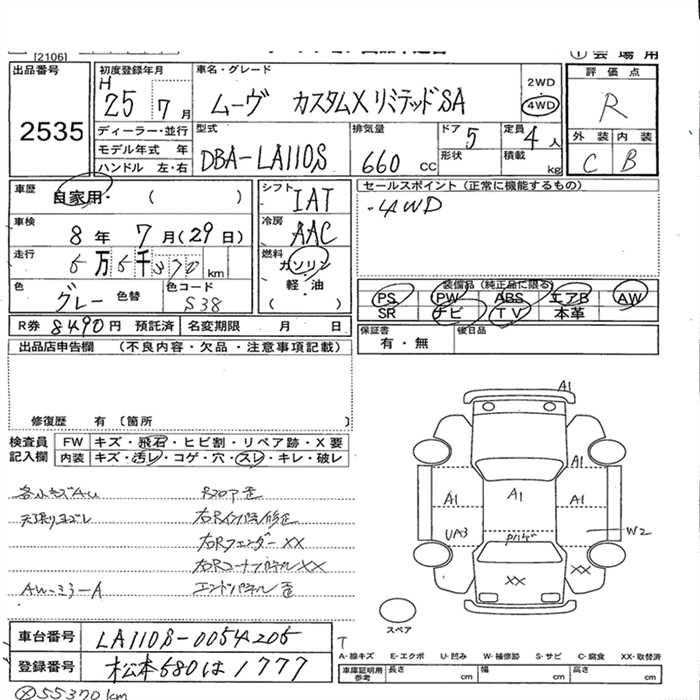 [2106]
① 会場用
出品番号
2535
初度登録年月
H 25 7月
車名・グレード
ムーヴ カスタムXリミテッドSA
2WD
4WD
評価点
R
外装 内装
C B
ディーラー・並行
モデル年式 年
ハンドル 左・右
型式
DBA-LA110S
排気量
660 CC
ドア 5
形状
定員 4人
積載 kg
車歴
自家用・( )
車検
8年 7月(29日)
走行
5万5千370km
色
グレー 色替
色コード
S38
シフト
IAT
冷房
AAC
燃料
ガソリン
軽・油
( )
セールスポイント(正常に機能するもの)
・4WD
装備品(純正品に限る)
PS PW ABS エアB AW
SR ナビ TV 本革
R券 8490円 預託済 名変期限 月 日
保証書
有・無
後日品
出品店申告欄 (不良内容・欠品・注意事項記載)
修復歴 有 〔箇所 〕
検査員
記入欄
FW キズ・飛石・ヒビ割・リペア跡・X要
内装 キズ・汚レ・コゲ・穴・スレ・キレ・破レ
各小キズAu
天張りヨゴレ
AW-ミラーA
Rフロア歪
右Rインパネル修正
右Rフェンダー XX
右Rコーナーパネル XX
エンドパネル歪
A1
A1
A1
A1
A1
UA3
W2
XX
XX
スペア
車台番号
LA110S-0054205
登録番号
松本580は1777
T
A-線キズ E-エクボ U-凹み W-補修跡 S-サビ C-腐食 XX-取替済
車庫証明用
参考
長さ cm
幅 cm
高さ cm
55370km